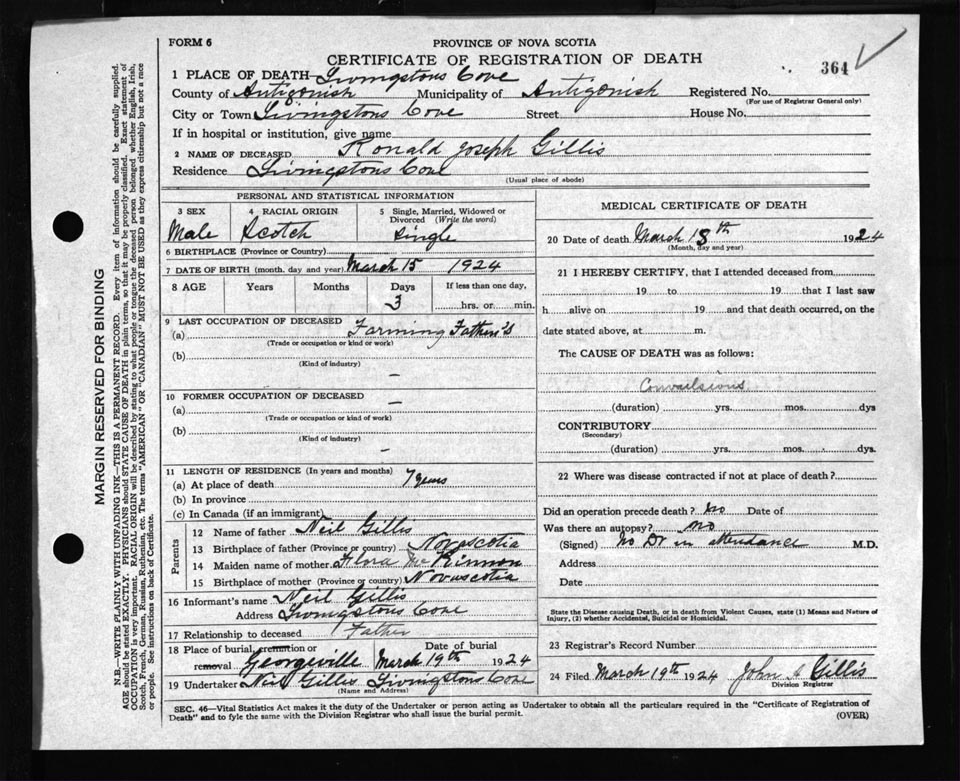 FORM 6
PROVINCE OF NOVA SCOTIA
CERTIFICATE OF REGISTRATION OF DEATH
364
1 PLACE OF DEATH Livingstons Cove
County of Antigonish Municipality of Antigonish Registered No.
(For use of Registrar General only)
City or Town Livingstons Cove Street House No.
If in hospital or institution, give name
2 NAME OF DECEASED Ronald Joseph Gillis
Residence Livingstons Cove
(Usual place of abode)
PERSONAL AND STATISTICAL INFORMATION
3 SEX 4 RACIAL ORIGIN 5 Single, Married, Widowed or Divorced (Write the word)
Male Scotch Single
6 BIRTHPLACE (Province or Country)
7 DATE OF BIRTH (month, day and year) March 15 1924
8 AGE Years Months Days If less than one day,
3 hrs. or min.
9 LAST OCCUPATION OF DECEASED
(a) Farming Father's
(Trade or occupation or kind or work)
(b)
(Kind of industry)
—
10 FORMER OCCUPATION OF DECEASED —
(a)
(Trade or occupation or kind of work)
(b)
(Kind of industry)
—
11 LENGTH OF RESIDENCE (In years and months)
(a) At place of death 7 years
(b) In province
(c) In Canada (if an immigrant)
Parents
12 Name of father Neil Gillis
13 Birthplace of father (Province or country) Novascotia
14 Maiden name of mother Flora McKinnon
15 Birthplace of mother (Province or country) Novascotia
16 Informant's name Neil Gillis
Address Livingstons Cove
17 Relationship to deceased Father
18 Place of burial, cremation or removal Georgeville Date of burial March 19th 1924
19 Undertaker Neil Gillis Livingstons Cove
(Name and Address)
MEDICAL CERTIFICATE OF DEATH
20 Date of death March 18th 1924
(Month, day and year)
21 I HEREBY CERTIFY, that I attended deceased from
19 to 19 that I last saw
h alive on 19 and that death occurred, on the
date stated above, at m.
The CAUSE OF DEATH was as follows:
Convulsions
(duration) yrs. mos. dys
CONTRIBUTORY
(Secondary)
(duration) yrs. mos. dys.
22 Where was disease contracted if not at place of death?
Did an operation precede death? No Date of
Was there an autopsy? No
(Signed) No Dr in attendance M.D.
Address
Date
State the Disease causing Death, or in death from Violent Causes, state (1) Means and Nature of
Injury, (2) whether Accidental, Suicidal or Homicidal.
23 Registrar's Record Number
24 Filed March 19th 1924 John A Gillis
Division Registrar
SEC. 46—Vital Statistics Act makes it the duty of the Undertaker or person acting as Undertaker to obtain all the particulars required in the "Certificate of Registration of
Death" and to fyle the same with the Division Registrar who shall issue the burial permit.
(OVER)
MARGIN RESERVED FOR BINDING
N.B.—WRITE PLAINLY WITH UNFADING INK—THIS IS A PERMANENT RECORD. Every item of information should be carefully supplied.
AGE should be stated EXACTLY. PHYSICIANS should STATE CAUSE OF DEATH in plain terms, so that it may be properly classified. Exact statement of
OCCUPATION is very important. RACIAL ORIGIN will be described by stating to what people or tongue the deceased person belonged whether English, Irish,
Scotch, French, German, Russian, Ruthenian, etc. The terms "AMERICAN" OR "CANADIAN" MUST NOT BE USED as they express citizenship but not a race
or people. See instructions on back of Certificate.